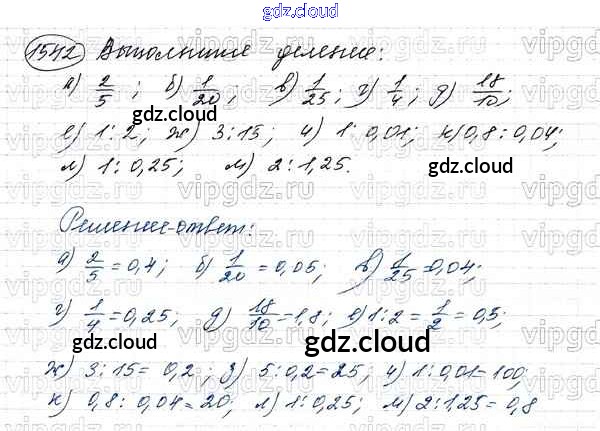 gdz.cloud
1542 Выполните деление:
а) 2/5; б) 1/20; в) 1/25; г) 1/4; д) 18/10;
gdz.cloud
е) 1:2; ж) 3:15; и) 1:0,01; к) 0,8:0,04;
л) 1:0,25; м) 2:1,25.
gdz.cloud
Решение-ответ:
а) 2/5 = 0,4; б) 1/20 = 0,05; в) 1/25 = 0,04;
г) 1/4 = 0,25; д) 18/10 = 1,8; е) 1:2 = 1/2 = 0,5;
gdz.cloud
gdz.cloud
ж) 3:15 = 0,2; з) 5:0,2 = 25; и) 1:0,01 = 100;
к) 0,8:0,04 = 20; л) 1:0,25; м) 2:1,25 = 0,8